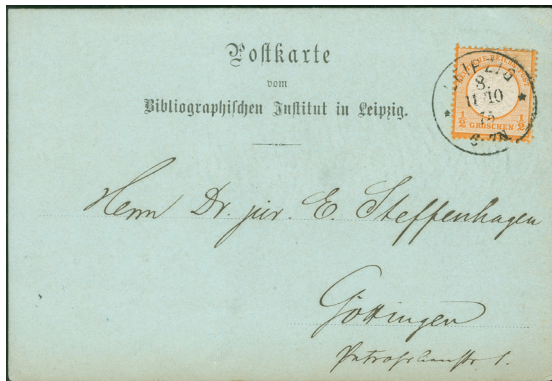 Postkarte
vom
Bibliographischen Institut in Leipzig.
LEIPZIG
8.
11 10
75
6-7N
½ GROSCHEN ½
Herrn Dr. jur. E. Steffenhagen
Göttingen
1.